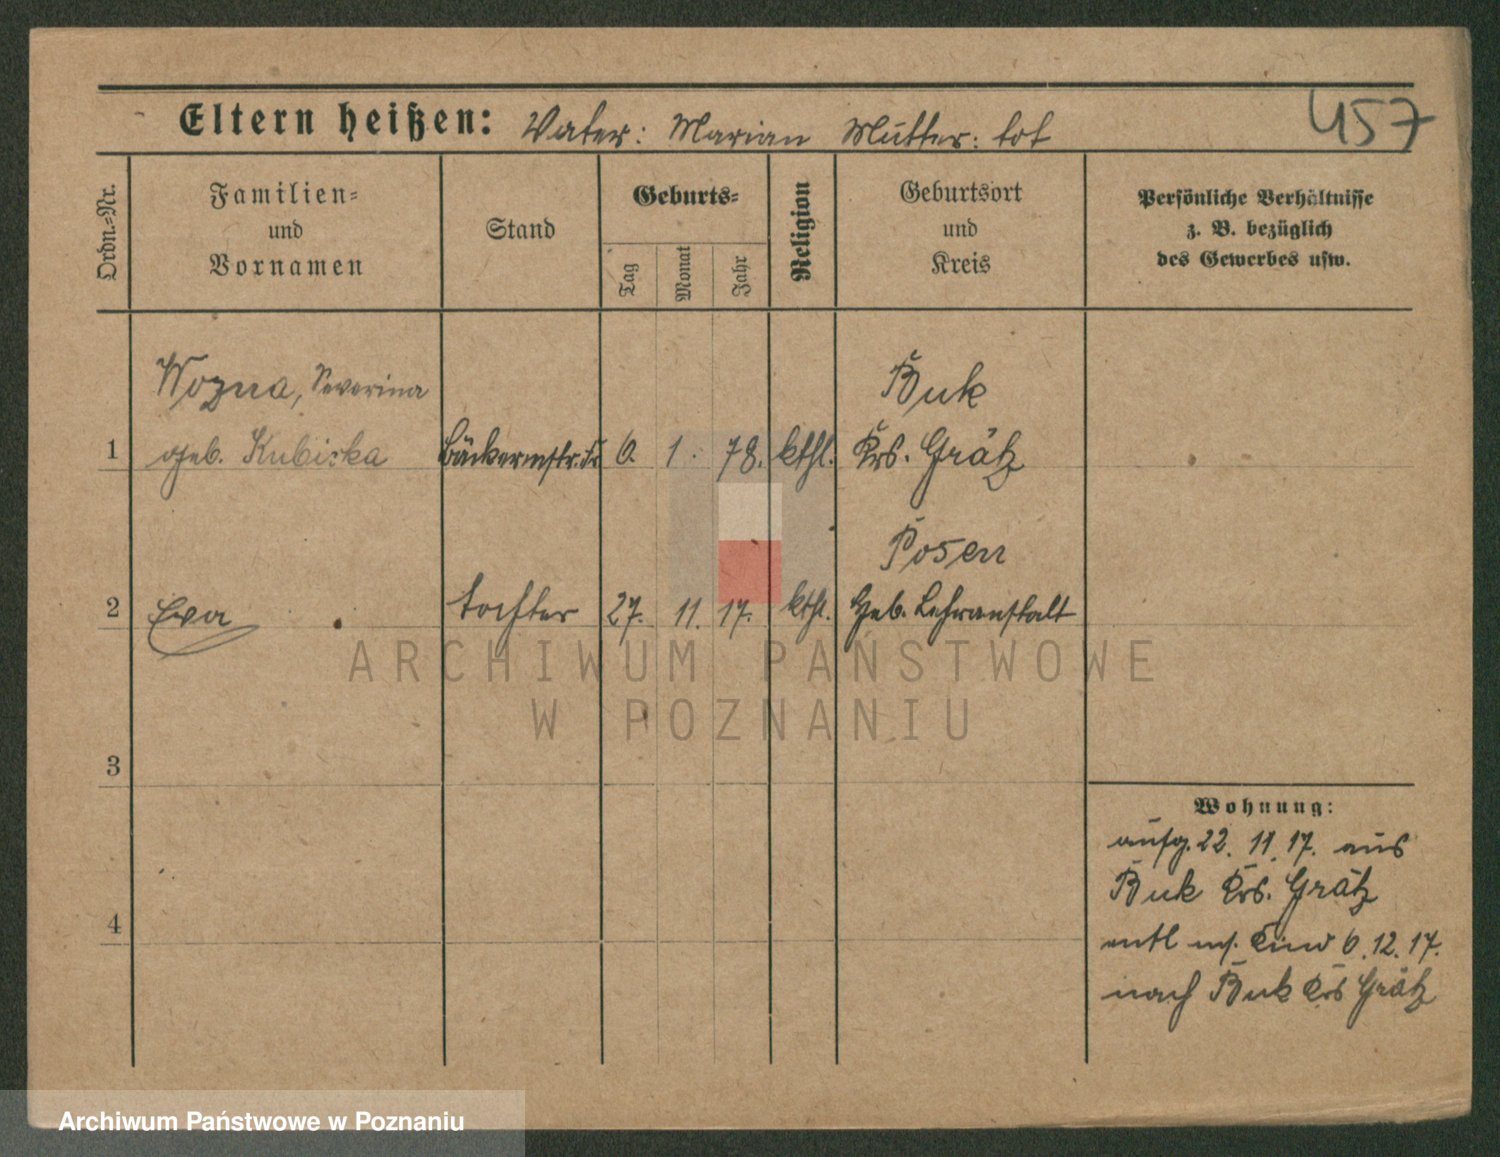 457
Eltern heißen: Vater: Marian Mutter: tot
Ordn.-Nr.
Familien-
und
Vornamen
Stand
Geburts-
Tag
Monat
Jahr
Religion
Geburtsort
und
Kreis
Persönliche Verhältnisse
z. B. bezüglich
des Gewerbes usw.
Wozna, Severina
Buk
1 geb. Kubicka Bäckermstr. 6. 1. 78. kthl. Krs. Grätz
Posen
2 Eva tochter 27. 11. 17. kthl. Heb. Lehranstalt
3
4
Wohnung:
aufg. 22. 11. 17. aus
Buk Krs. Grätz
entl m. Kind 6. 12. 17.
nach Buk Krs Grätz
ARCHIWUM PAŃSTWOWE
W POZNANIU
Archiwum Państwowe w Poznaniu